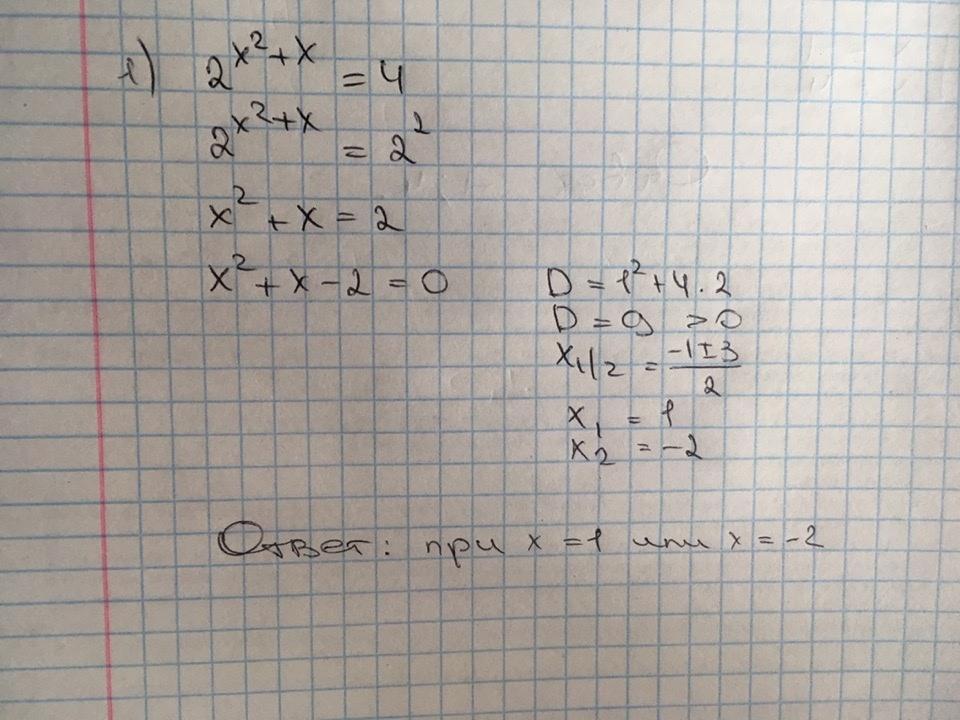 1) 2^{x²+x} = 4
2^{x²+x} = 2²
x² + x = 2
x² + x - 2 = 0
D = 1² + 4 · 2
D = 9 > 0
x₁/₂ = \frac{-1±3}{2}
x₁ = 1
x₂ = -2
Ответ: при x = 1 или x = -2